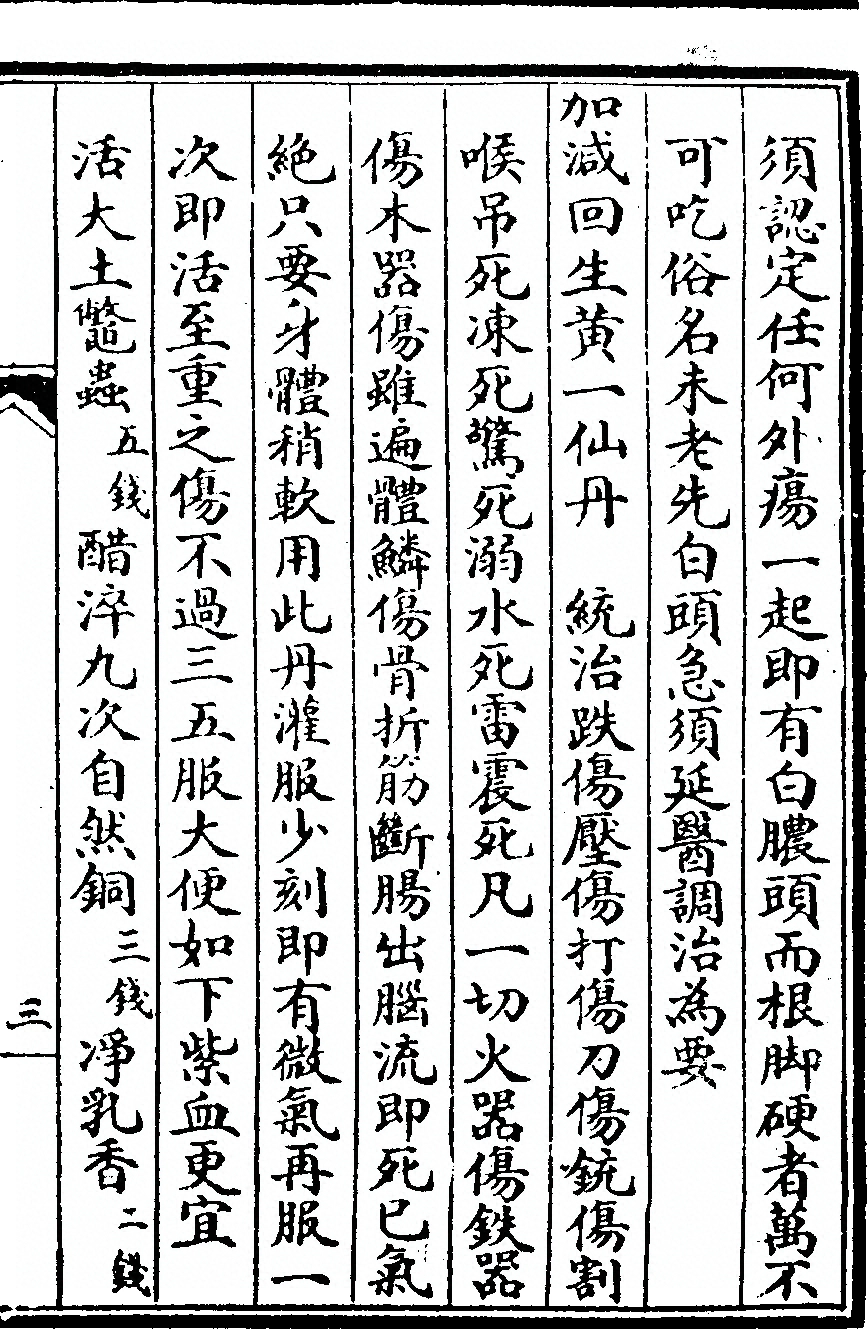 須認定任何外瘍一起即有白膿頭而根脚硬者萬不
可吃俗名未老先白頭急須延醫調治為要
加減回生黃一仙丹　統治跌傷壓傷打傷刀傷銃傷割
喉吊死凍死驚死溺水死雷震死凡一切火器傷鉄器
傷木器傷雖遍體鱗傷骨折筋斷腸出腦流即死已氣
絕只要身體稍軟用此丹灌服少刻即有微氣再服一
次即活至重之傷不過三五服大便如下紫血更宜
活大土鼈蟲五錢醋淬九次自然銅三錢淨乳香二錢
三